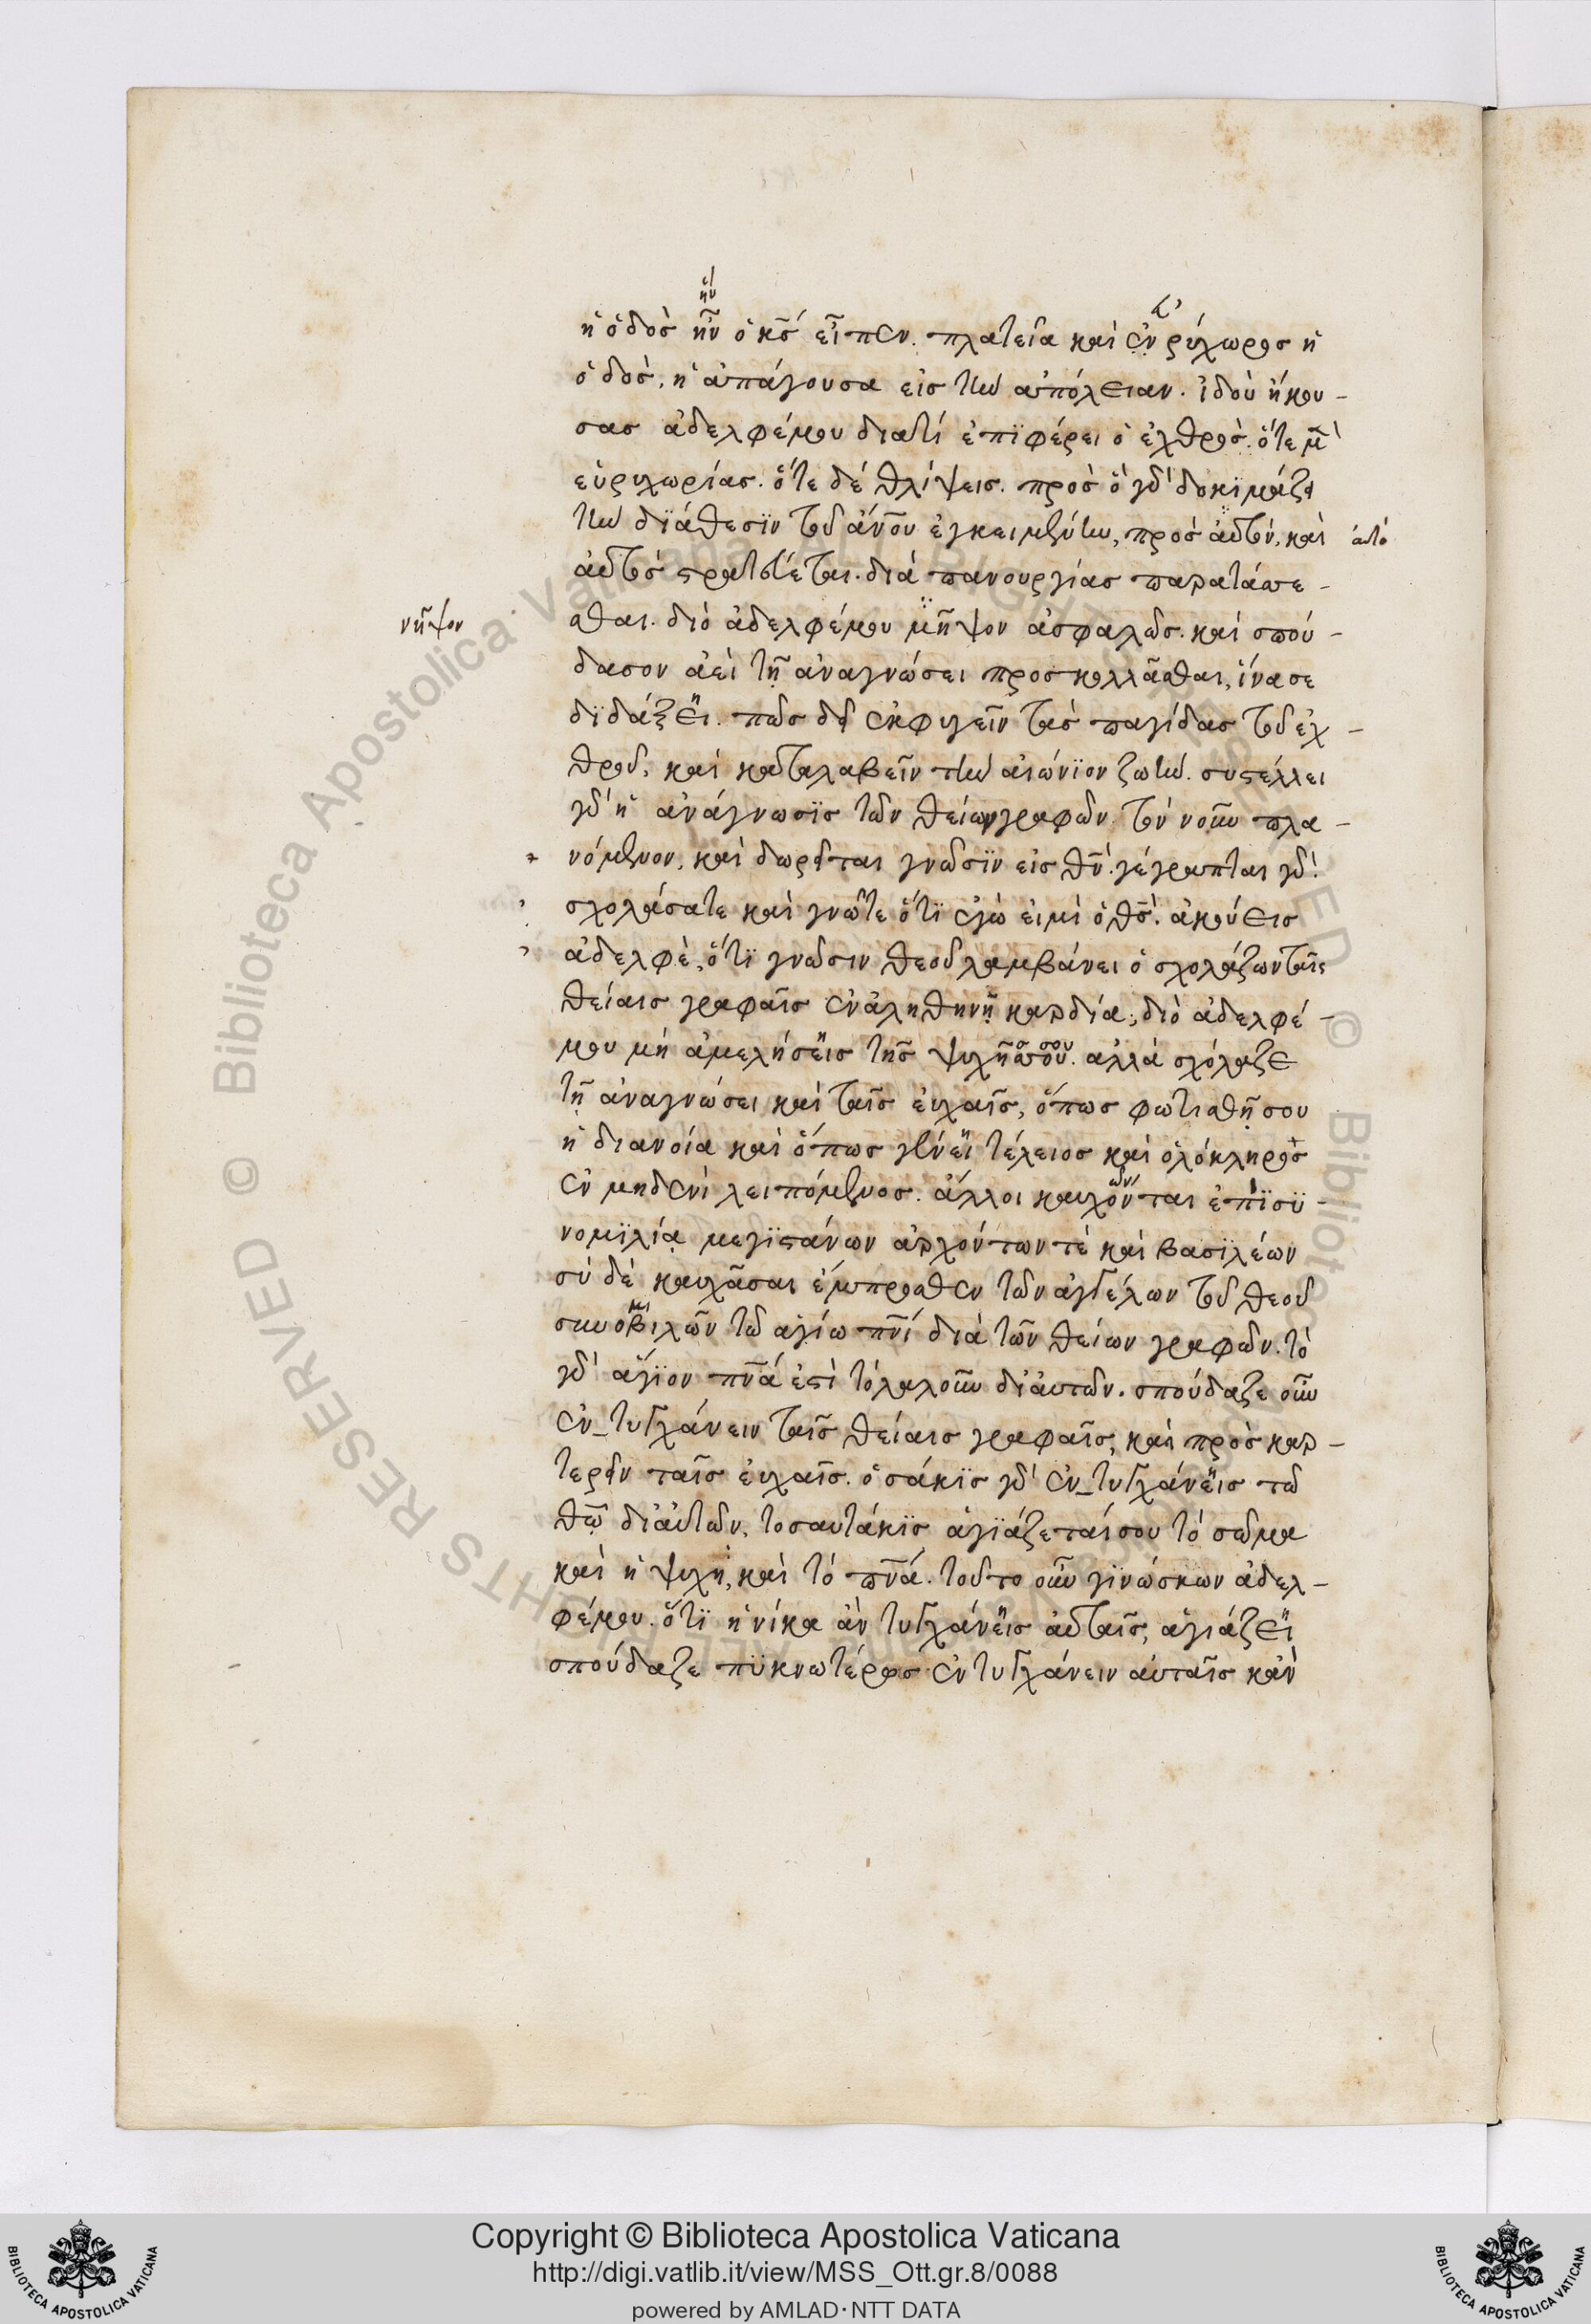 ἡ ὁδὸσ ἣν ὁ κ̅σ̅ εἶπεν. πλατεῖα καὶ ἐνρύχωροσ ἡ
ὁδὸσ, ἡ ἀπάγουσα εἰσ τὴν ἀπόλειαν. ἰδοὺ ἤκου-
σασ ἀδελφέμου διατί ἐπϊφέρει ὁ ἐχθρὸσ. ὅτε μ̅ὲ̅
εὐρυχωρίασ. ὅτε δέ θλίψεισ. πρὸσ ὅ γὰρ δοκϊμάζει
τὴν δϊάθεσϊν τοῦ ἀν̅ο̅υ ἐγκειμένην, πρὸσ αὐτόν, καὶ
αὐτό
αὐτόσ στρατεύεται. διά πανουργίασ παρατάσσε-
σθαι. διό ἀδελφέμου μῆψον ἀσφαλῶσ. καὶ σπού-
νῆψον
δασον ἀεὶ τῆ ἀναγνώσει προσκολλᾶσθαι, ἵνασε
δϊδάξει. πῶσ δεῖ ἐκφυγεῖν τὰσ παγίδασ τοῦ ἐχ-
θροῦ, καὶ καταλαβεῖν τὴν αἰώνϊον ζωὴν. συστέλλει
γὰρ ἡ ἀνάγνωσϊσ τῶν θείων γραφῶν τὸν νοῦν πλα-
νόμενον, καὶ δωρεῖται γνῶσϊν εἰσ θ̅ν̅. γέγραπται γὰρ.
σχολάσατε καὶ γνῶτε ὅτϊ ἐγὼ εἰμὶ ὁ θ̅σ̅. ἀκούεισ
ἀδελφὲ, ὅτϊ γνῶσιν θεοῦ λαμβάνει ὁ σχολάζων ταῖς
θείαισ γραφαῖσ ἐν ἀληθηνῇ καρδία, διὸ ἀδελφέ-
μου μὴ ἀμελήσεισ τῆσ ψυχῆσ σου. αλλά σχόλαζε
τῇ ἀναγνώσει καὶ ταῖσ ἐυχαῖσ, ὅπωσ φωτισθῇ σου
ἡ διανοία καὶ ὅπωσ γένει τέλειοσ καὶ ὁλόκληροσ
ἐν μηδενὶ λειπόμενοσ. ἄλλοι καυχοῦνται ἐπϊσϋ-
νομϊλία μεγϊστάνων ἀρχόντων τὲ καὶ βασϊλέων
σὺ δὲ καυχᾶσαι ἔμπροσθεν τῶν ἀγγέλων τοῦ θεοῦ
σηνοβιλῶν τῶ ἁγίω π̅ν̅ί διὰ τῶν θείων γραφῶν. τὸ
γὰρ ἅγϊον π̅ν̅ά ἐστὶ τὸ λαλοῦν δι ἀυτῶν. σπούδαζε οὖν
ἐν_τυγχάνειν ταῖσ θείαισ γραφαῖσ, καὶ πρὸσ καρ-
τερεῖν ταῖσ ἐυχαῖσ. ὁσάκϊσ γὰρ ἐν_τυγχάνεισ τῶ
θ̅ῶ̅ δι ἀυτῶν, τοσαυτάκϊσ ἁγϊάζεταί σου τὸ σῶμα
καὶ ἡ ψυχὴ, καὶ τὸ π̅ν̅ά. τοῦτο οὖν γϊνώσκων ἀδελ-
φέμου. ὅτϊ ἡνίκα ἀν τυγχάνεισ αὐταῖσ, ἁγιάζει
σπούδαζε πϋκνωτέρωσ ἐντυγχάνειν ἀυταῖσ κἀν
Copyright © Biblioteca Apostolica Vaticana
http://digi.vatlib.it/view/MSS_Ott.gr.8/0088
powered by AMLAD·NTT DATA